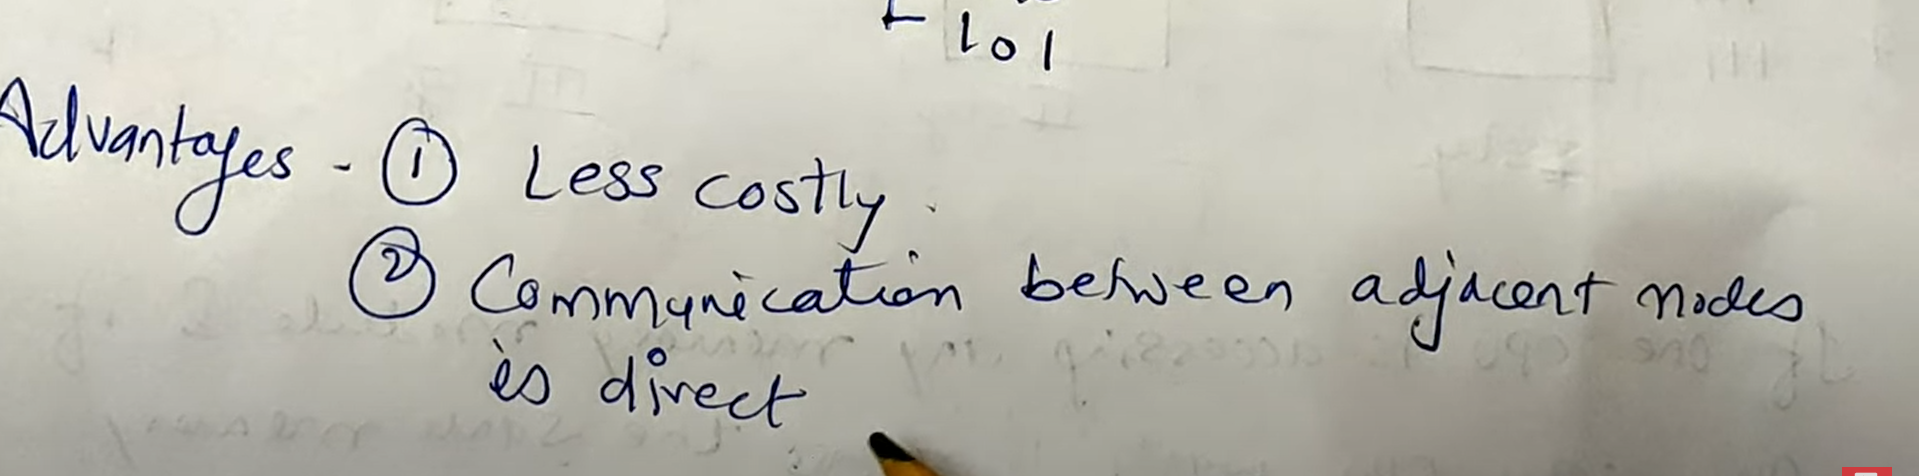 101
Advantages - ① Less costly.
② Communication between adjacent nodes
is direct